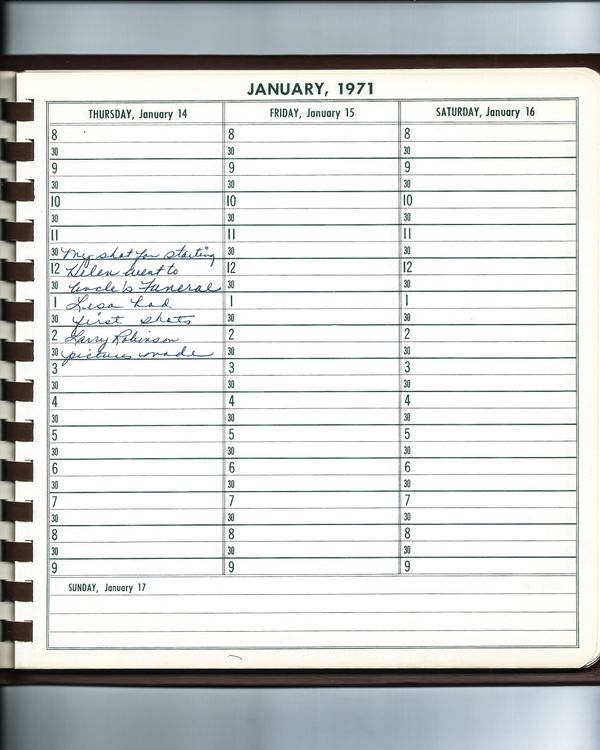 JANUARY, 1971
THURSDAY, January 14
8
30
9
30
10
30
11
30 My shot for starting
12 Helen went to
30 Uncle's Funeral
1 Lesa had
30 first shots
2 Larry Robinson
30 pictures made
3
30
4
30
5
30
6
30
7
30
8
30
9
FRIDAY, January 15
8
30
9
30
10
30
11
30
12
30
1
30
2
30
3
30
4
30
5
30
6
30
7
30
8
30
9
SATURDAY, January 16
8
30
9
30
10
30
11
30
12
30
1
30
2
30
3
30
4
30
5
30
6
30
7
30
8
30
9
SUNDAY, January 17